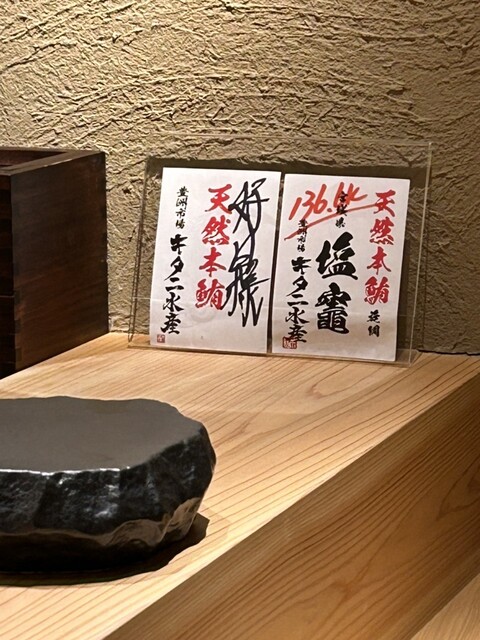 天然本鮪
延縄
136.6K
宮城県
塩竈
豊洲市場
キタニ水産
天然本鮪
豊洲市場
キタニ水産